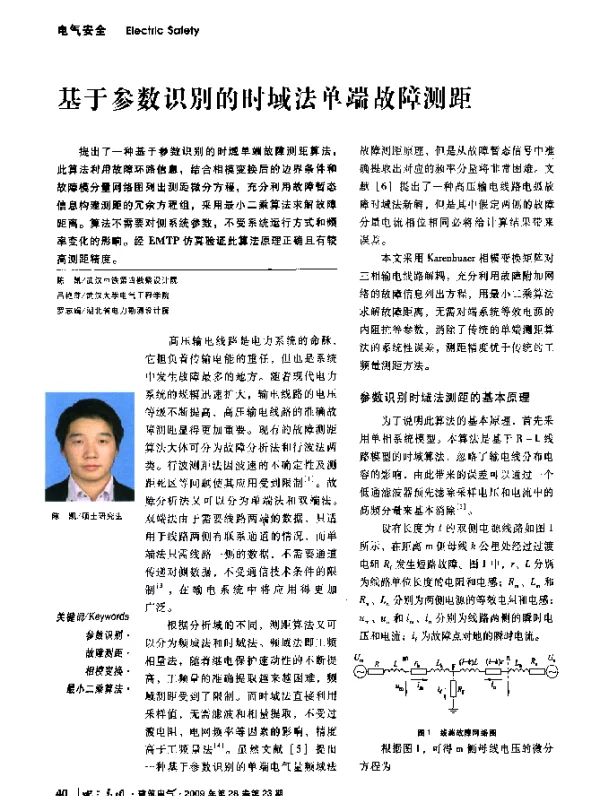 电气安全 Electric Safety
基于参数识别的时域法单端故障测距
提出了一种基于参数识别的时域单端故障测距算法，
此算法利用故障环路信息，结合相模变换后的边界条件和
故障模分量网络图列出测距微分方程，充分利用故障暂态
信息构建测距的冗余方程组，采用最小二乘算法求解故障
距离。算法不需要对侧系统参数，不受系统运行方式和频
率变化的影响。经 EMTP 仿真验证此算法原理正确且有较
高测距精度。
陈 凯/武汉中铁第四勘察设计院
/武汉大学电气工程学院
罗志娟/湖北省电力勘测设计院
陈 凯/硕士研究生
关键词/Keywords
参数识别·
故障测距·
相模变换·
最小二乘算法·
高压输电线路是电力系统的命脉，
它担负着传输电能的重任，但也是系统
中发生故障最多的地方。随着现代电力
系统的规模迅速扩大，输电线路的电压
等级不断提高，高压输电线路的准确故
障测距显得更加重要。现有的故障测距
算法大体可分为故障分析法和行波法两
类。行波测距法因波速的不确定性及测
距死区等问题使其应用受到限制[1]。故
障分析法又可以分为单端法和双端法。
双端法由于需要线路两端的数据，只适
用于线路两侧有联系通道的情况，而单
端法只需线路一侧的数据，不需要通道
传递对侧数据，不受通信技术条件的限
制[3]，在输电系统中将应用得更加
广泛。
根据分析域的不同，测距算法又可
以分为频域法和时域法。频域法即工频
相量法，随着继电保护速动性的不断提
高，工频量的准确提取越来越困难，频
域测距受到了限制。而时域法直接利用
采样值，无需滤波和相量提取，不受过
渡电阻、电网频率等因素的影响，精度
高于工频量法[4]。虽然文献［5］提出
一种基于参数识别的单端电气量频域法
故障测距原理，但是从故障暂态信号中准
确提取出对应的频率分量将非常困难。文
献［6］提出了一种高压输电线路电弧故
障时域法新解，但是其中假定两侧的故障
分量电流相位相同必将给计算结果带来
误差。
本文采用 Karenhuaer 相模变换矩阵对
三相输电线路解耦，充分利用故障附加网
络的故障信息列出方程，用最小二乘算法
求解故障距离，无需对端系统等效电源的
内阻抗等参数，消除了传统的单端测距算
法的系统性误差，测距精度优于传统的工
频量测距方法。
参数识别时域法测距的基本原理
为了说明此算法的基本原理，首先采
用单相系统模型。本算法是基于 R－L 线
路模型的时域算法，忽略了输电线分布电
容的影响，由此带来的误差可以通过一个
低通滤波器预先滤除采样电压和电流中的
高频分量来基本消除[3]。
设有长度为 l 的双侧电源线路如图 1
所示，在距离 m 侧母线 k 公里处经过过渡
电阻 Rf 发生短路故障。图 1 中，r、L 分别
为线路单位长度的电阻和电感；Rm、Lm 和
Rn、Ln 分别为两侧电源的等效电阻和电感；
um、un 和 im、in 分别为线路两侧的瞬时电
压和电流；if 为故障点对地的瞬时电流。
图 1 线路故障网络图
根据图 1，可得 m 侧母线电压的微分
方程为
40 ·建筑电气·2009 年第 28 卷第 23 期